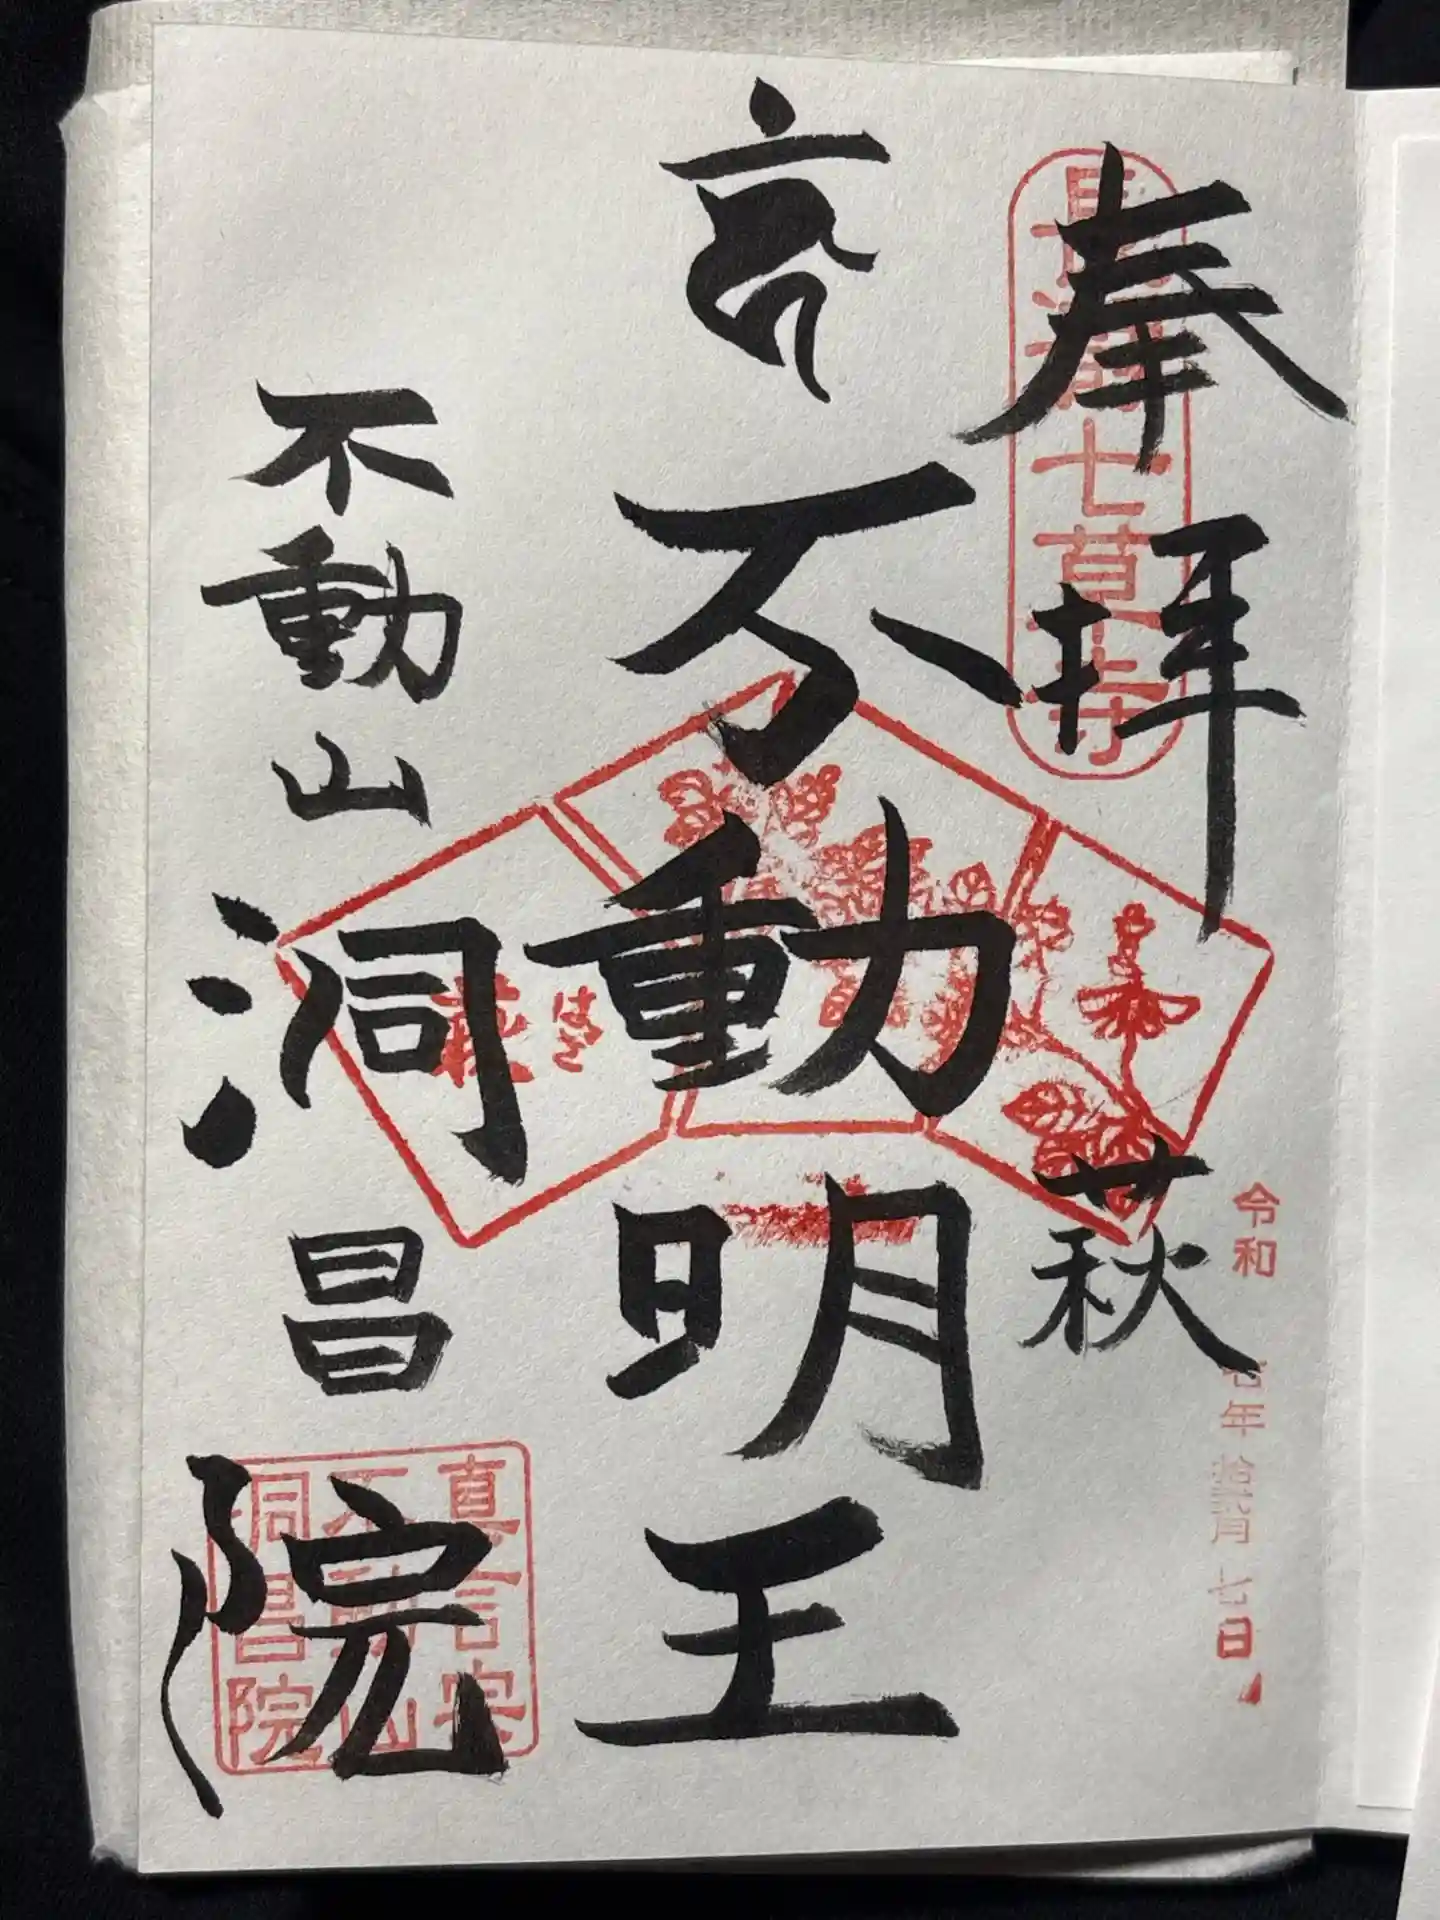 奉拝
長瀞七草寺
萩
令和
年
月
七日
不動明王
萩
はぎ
不動山
洞昌院
真言宗
不動山
洞昌院